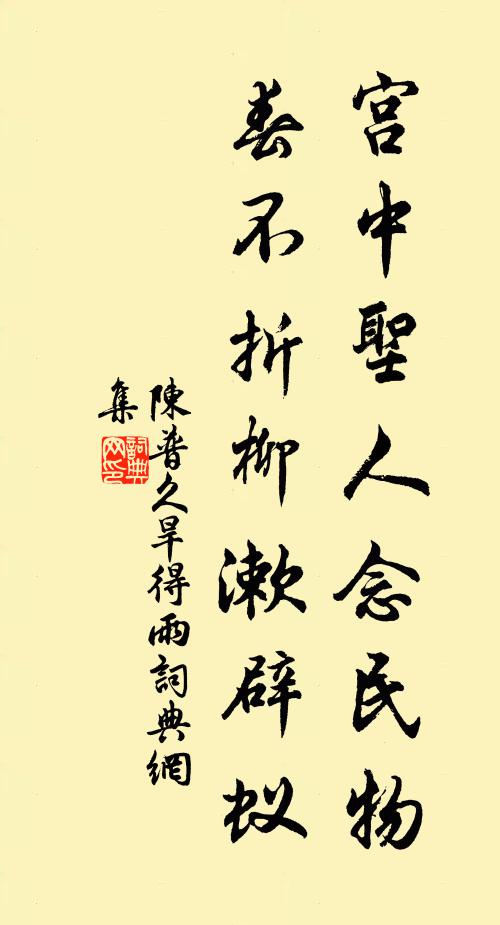 宫中聖人念民物
春不折柳漱辟蚁
陳普久旱得雨詞典網
集
詞典
网印